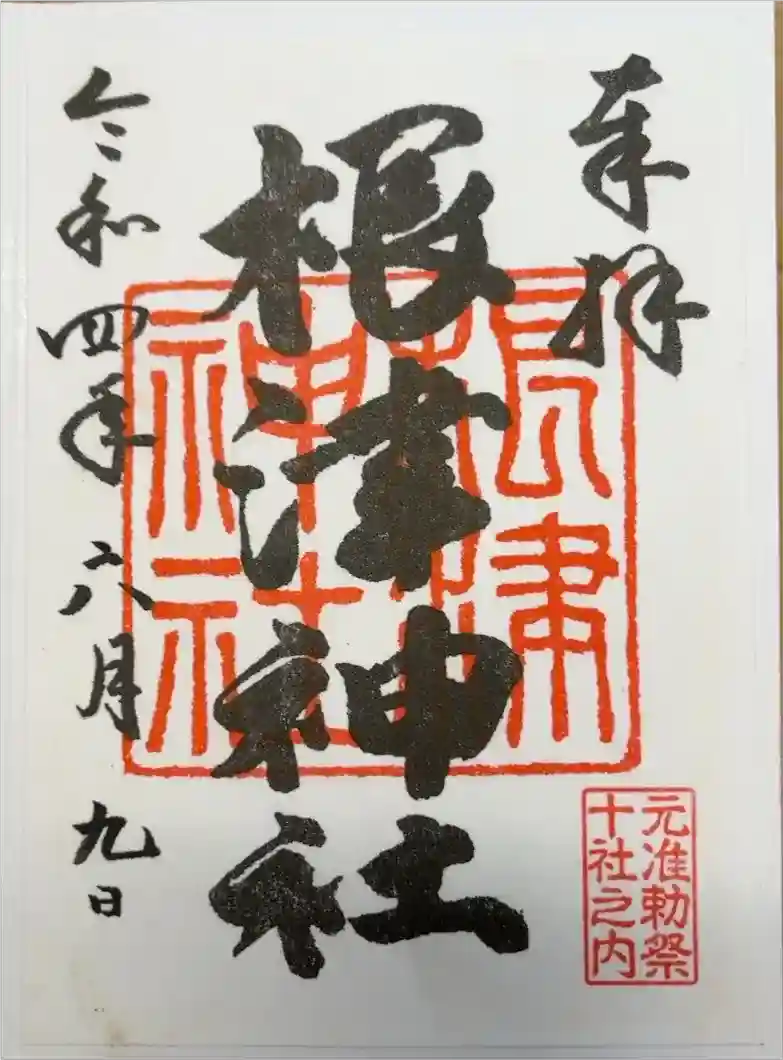 奉拝
根津神社
令和四年六月九日
根津
神社
元准勅祭
十社之内